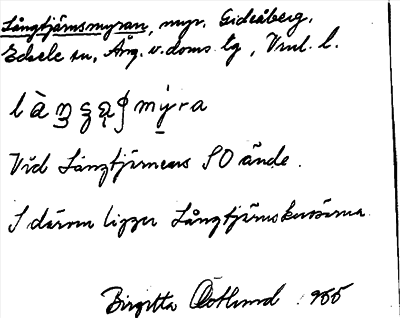 Långtjärnsmyran, myr. Gideåberg,
Edsele sn, Ång. v. doms. tg, Vnl. l.
Vid Långtjärnens SO ände.
S därom ligger Långtjärnskusarna.
Birgitta Östlund 1955